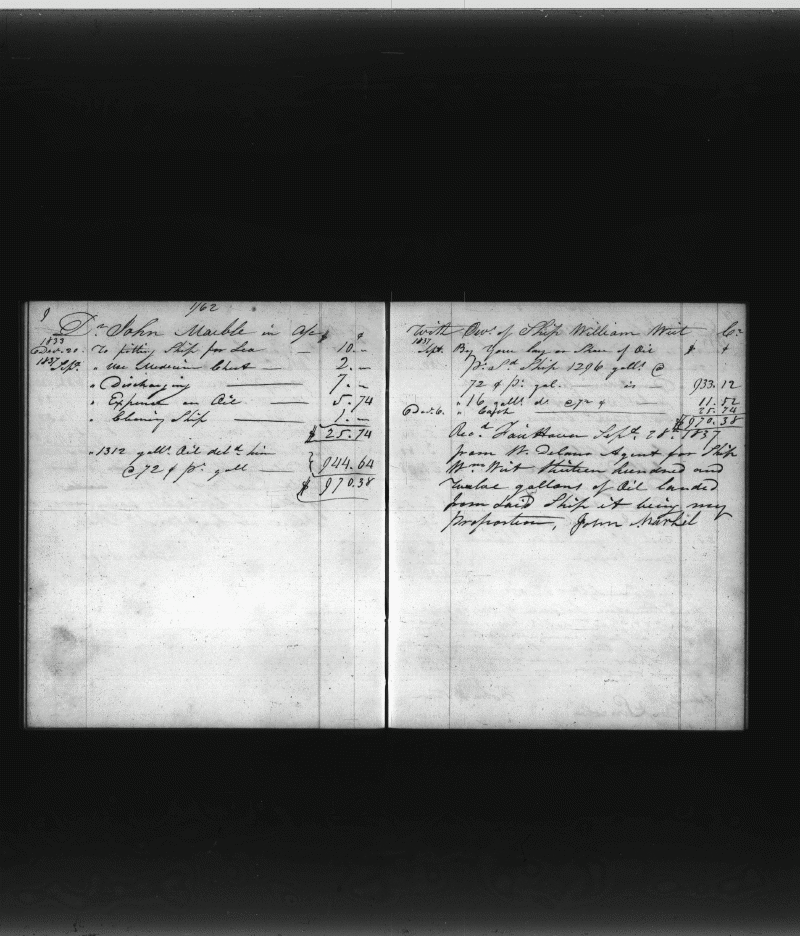 9
1/62
Dr. John Marble in a/c
1833
Decr. 20. To fitting Ship for Sea — 10.–
1837 Sept. " use Medicine Chest — 2.–
" Discharging — 7.–
" Expense on Oil — 5.74
" Cleaning Ship — 1.–
$ 25.74
" 1312 galls. Oil deld. him
@ 72 ¢ pr. gall — 944.64
$ 970.38
With Ows. of Ship William Wirt Cr.
1837
Sept. By Your lay or Share of Oil $ ¢
pr. sd. Ship 1296 galls. @
72 ¢ pr. gal. — is — 933.12
" 16 galls. do. @ 72 ¢ — 11.52
Dec. 6. " Cash — 25.74
$ 970.38
Recd. Fair Haven Septr. 28th. 1837
from W. Delano Agent for Ship
Wm. Wirt thirteen hundred and
Twelve gallons of Oil landed
from Said Ship it being my
Proportion, John Marbel